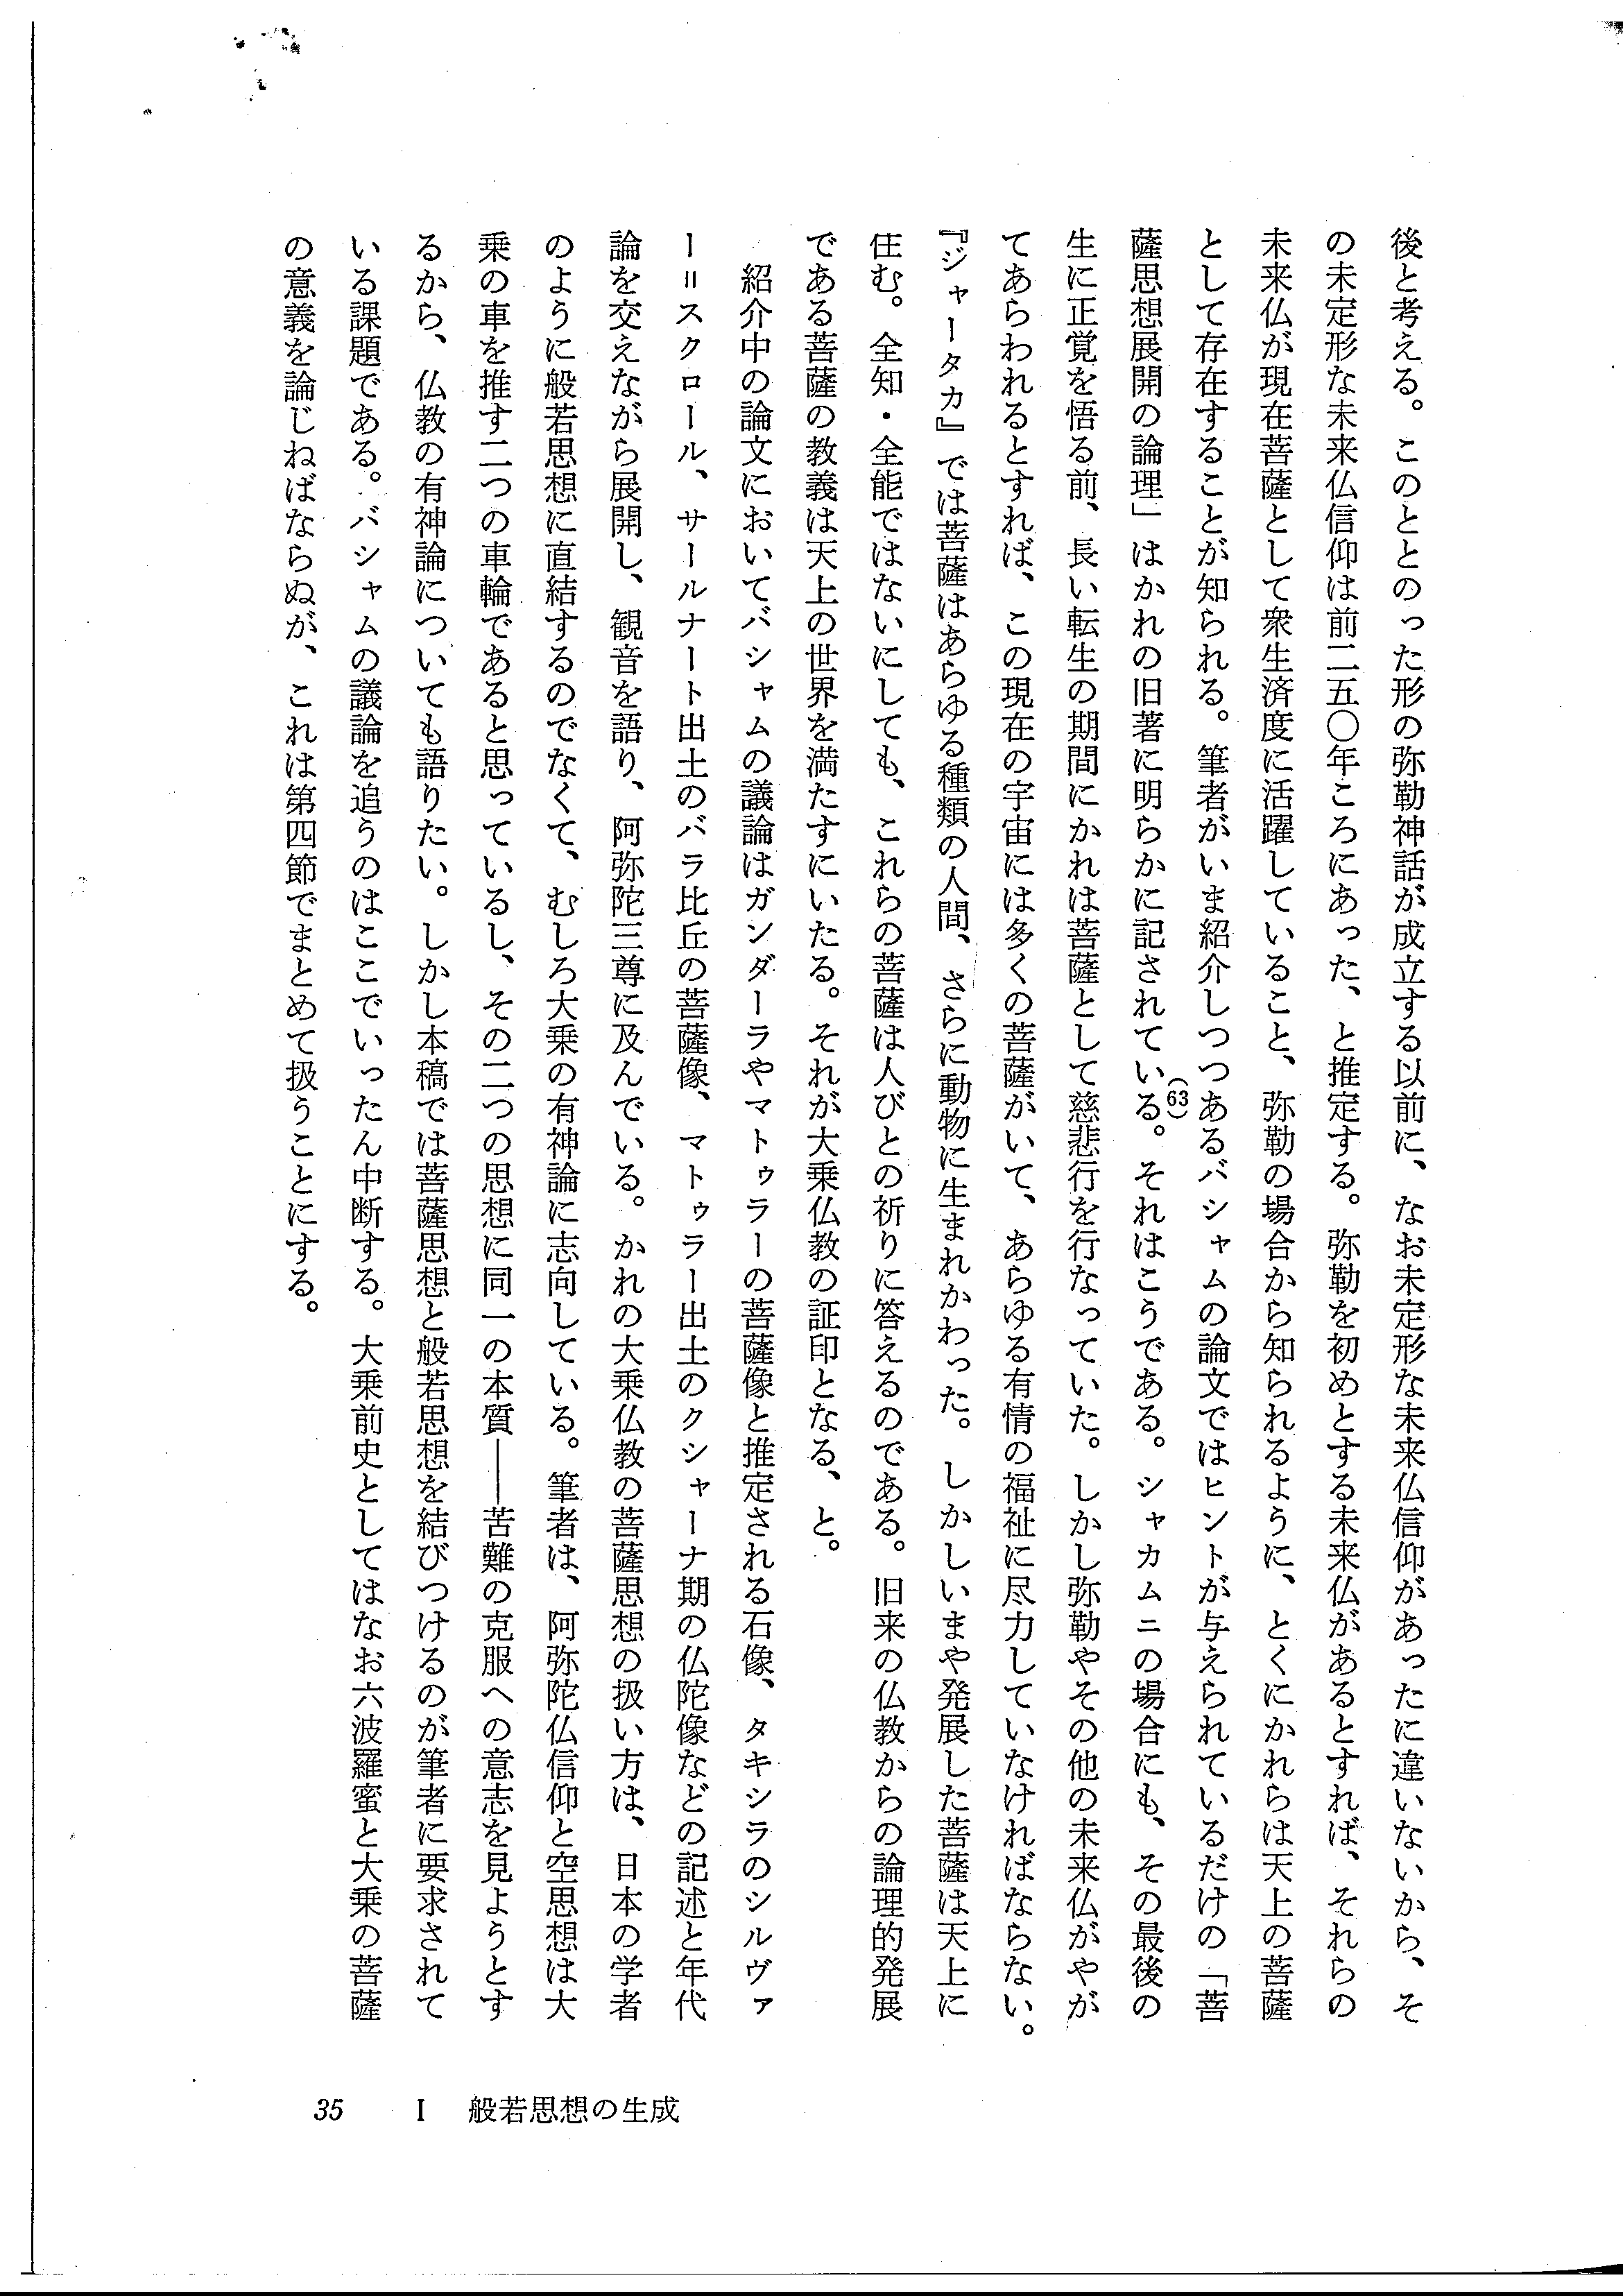 後と考える。このととのった形の弥勒神話が成立する以前に、なお未定形な未来仏信仰があったに違いないから、そ
の未定形な未来仏信仰は前二五〇年ころにあった、と推定する。弥勒を初めとする未来仏があるとすれば、それらの
未来仏が現在菩薩として衆生済度に活躍していること、弥勒の場合から知られるように、とくにかれらは天上の菩薩
として存在することが知られる。筆者がいま紹介しつつあるバシャムの論文ではヒントが与えられているだけの「菩
薩思想展開の論理」はかれの旧著に明らかに記されている(63)。それはこうである。シャカムニの場合にも、その最後の
生に正覚を悟る前、長い転生の期間にかれは菩薩として慈悲行を行なっていた。しかし弥勒やその他の未来仏がやが
てあらわれるとすれば、この現在の宇宙には多くの菩薩がいて、あらゆる有情の福祉に尽力していなければならない。
『ジャータカ』では菩薩はあらゆる種類の人間、さらに動物に生まれかわった。しかしいまや発展した菩薩は天上に
住む。全知・全能ではないにしても、これらの菩薩は人びとの祈りに答えるのである。旧来の仏教からの論理的発展
である菩薩の教義は天上の世界を満たすにいたる。それが大乗仏教の証印となる、と。
紹介中の論文においてバシャムの議論はガンダーラやマトゥラーの菩薩像と推定される石像、タキシラのシルヴァ
ー＝スクロール、サールナート出土のバラ比丘の菩薩像、マトゥラー出土のクシャーナ期の仏陀像などの記述と年代
論を交えながら展開し、観音を語り、阿弥陀三尊に及んでいる。かれの大乗仏教の菩薩思想の扱い方は、日本の学者
のように般若思想に直結するのでなくて、むしろ大乗の有神論に志向している。筆者は、阿弥陀仏信仰と空思想は大
乗の車を推す二つの車輪であると思っているし、その二つの思想に同一の本質――苦難の克服への意志を見ようとす
るから、仏教の有神論についても語りたい。しかし本稿では菩薩思想と般若思想を結びつけるのが筆者に要求されて
いる課題である。バシャムの議論を追うのはここでいったん中断する。大乗前史としてはなお六波羅蜜と大乗の菩薩
の意義を論じねばならぬが、これは第四節でまとめて扱うことにする。
35 I 般若思想の生成